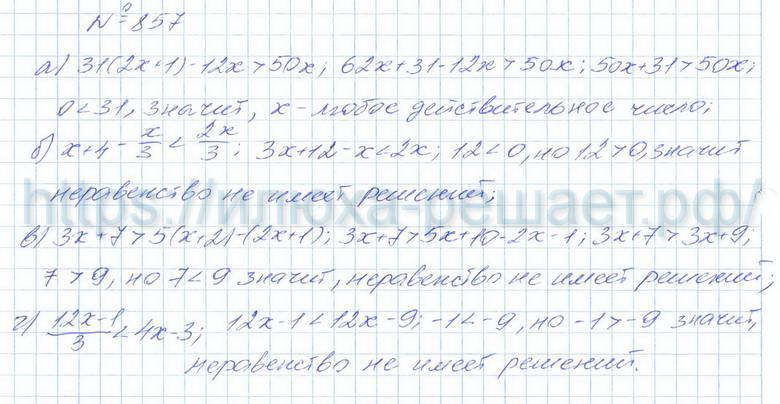 № 857
а) 31(2x+1)-12x>50x; 62x+31-12x>50x; 50x+31>50x;
0<31, значит, x - любое действительное число;
б) x+4-x/3<2x/3; 3x+12-x<2x; 12<0, но 12>0, значит
неравенство не имеет решений;
https://илюха-решает.рф/
в) 3x+7>5(x+2)-(2x+1); 3x+7>5x+10-2x-1; 3x+7>3x+9;
7>9, но 7<9 значит, неравенство не имеет решений;
г) (12x-1)/3<4x-3; 12x-1<12x-9; -1<-9, но -1>-9 значит,
неравенство не имеет решений.